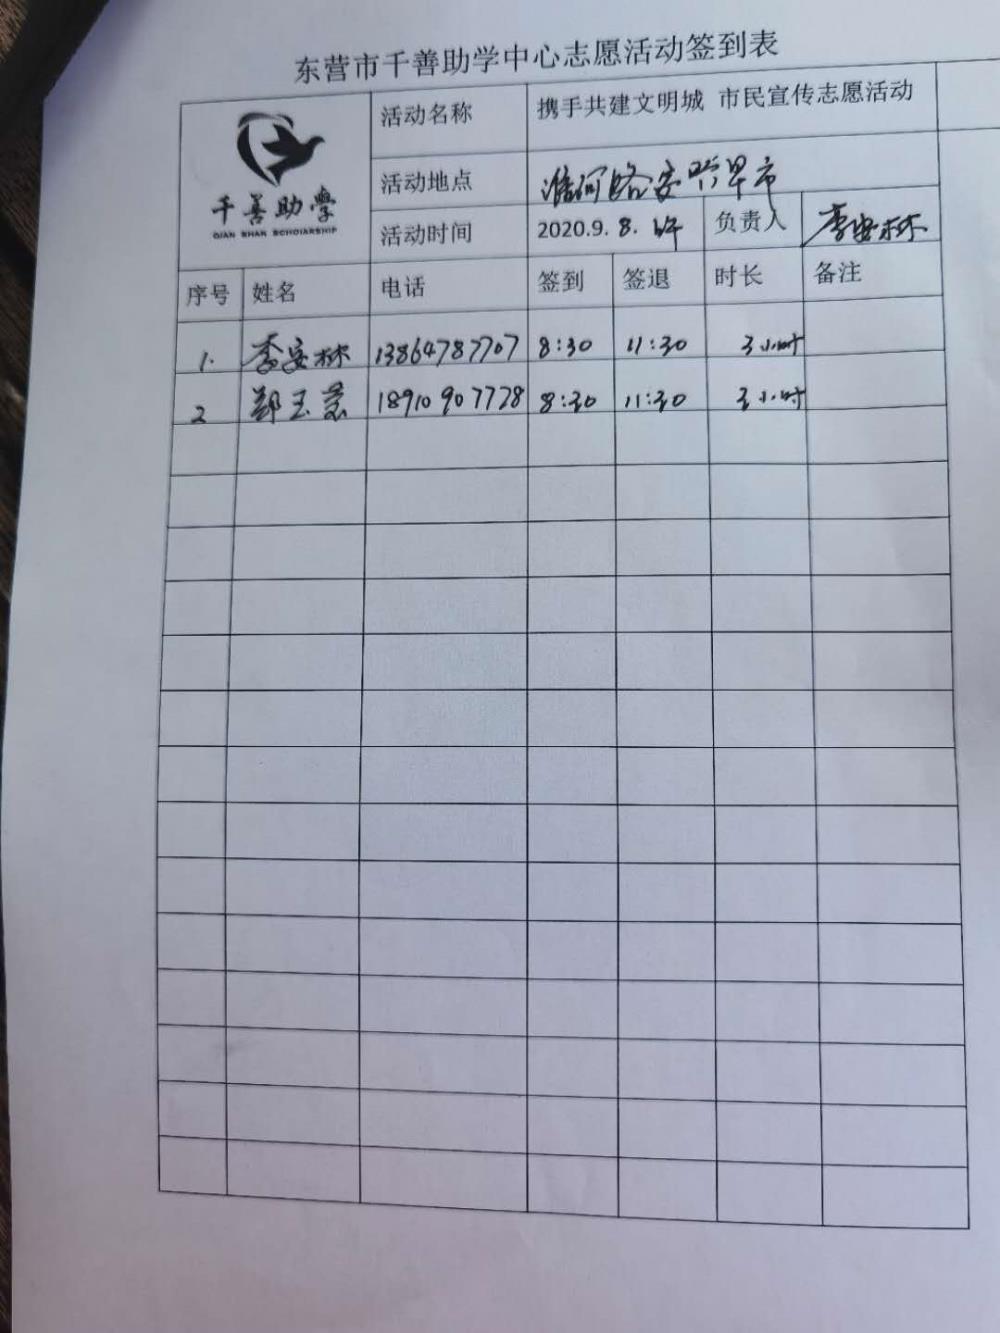 东营市千善助学中心志愿活动签到表
活动名称 携手共建文明城 市民宣传志愿活动
千善助学
QIAN SHAN SCHOLARSHIP
活动地点 淮河路 早市
活动时间 2020.9.8. 负责人 李安林
序号 姓名 电话 签到 签退 时长 备注
1. 李安林 13864787707 8:30 11:30 3小时
2 郑玉 18910907728 8:30 11:30 3小时